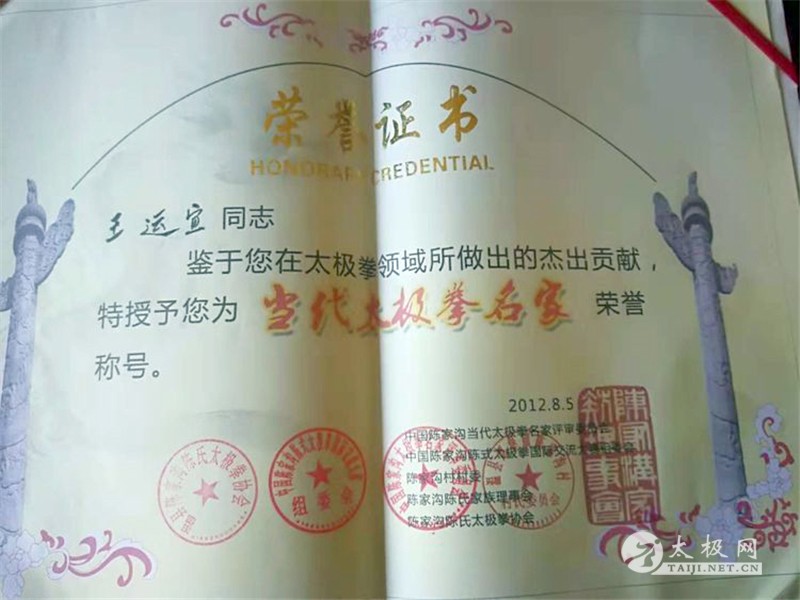 荣誉证书
HONORARY CREDENTIAL
王运宣 同志
鉴于您在太极拳领域所做出的杰出贡献，
特授予您为 当代太极拳名家 荣誉
称号。
2012.8.5
中国陈家沟当代太极拳名家评审委员会
中国陈家沟陈式太极拳国际交流大赛组委会
陈家沟村村委
陈家沟陈氏家族理事会
陈家沟陈氏太极拳协会
陈家沟陈氏太极拳协会
组委会
村民委员会
太极网
TAIJI.NET.CN